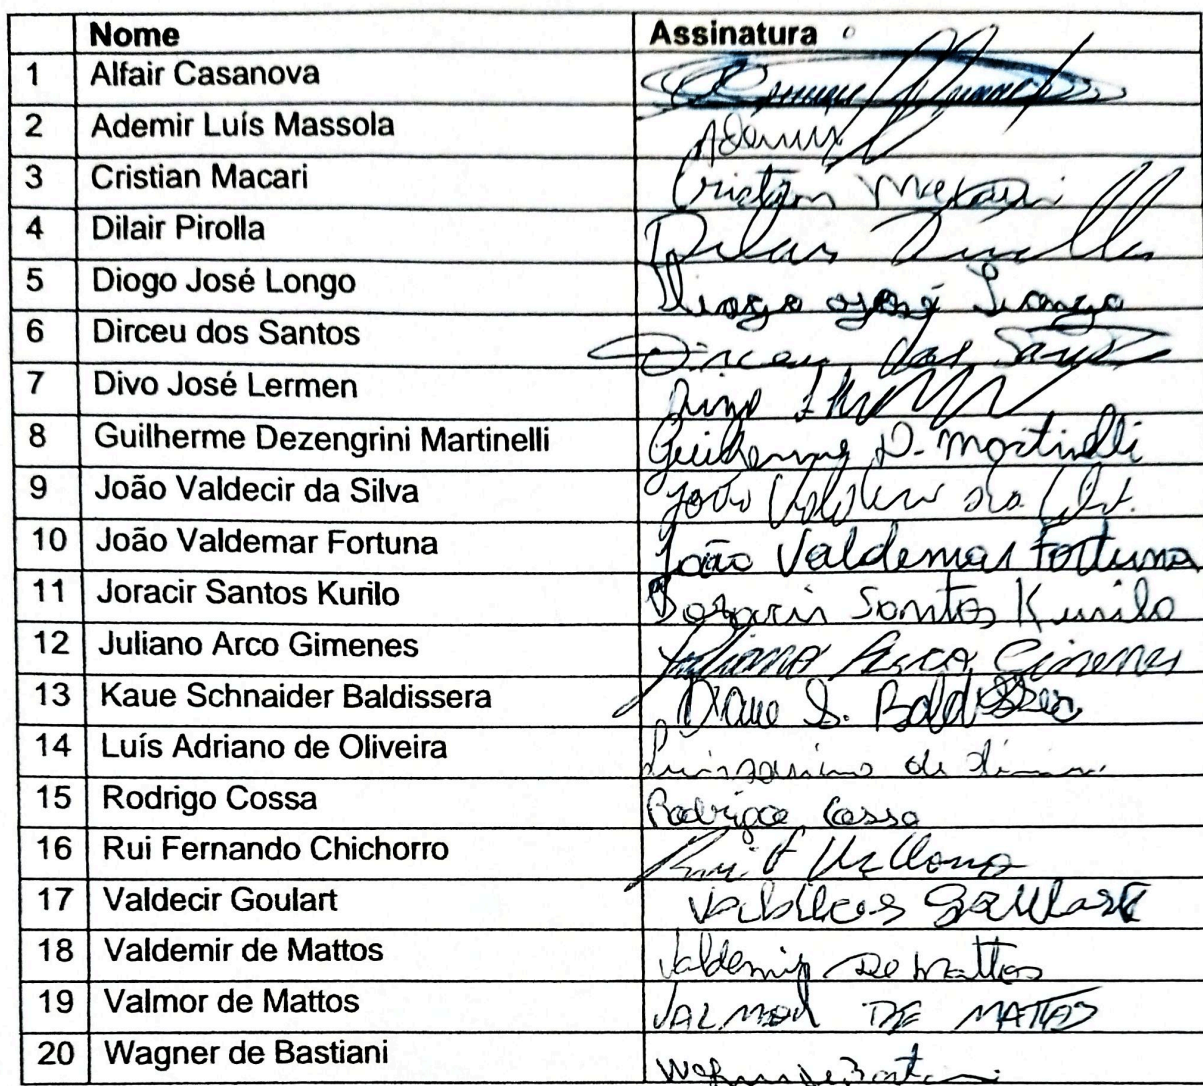 Nome Assinatura
1 Alfair Casanova
2 Ademir Luís Massola Ademir
3 Cristian Macari Cristian Macari
4 Dilair Pirolla Dilair Pirolla
5 Diogo José Longo Diogo José Longo
6 Dirceu dos Santos Dirceu dos Santos
7 Divo José Lermen Divo
8 Guilherme Dezengrini Martinelli Guilherme D. Martinelli
9 João Valdecir da Silva João Valdecir da
10 João Valdemar Fortuna João Valdemar Fortuna
11 Joracir Santos Kurilo Joracir Santos Kurilo
12 Juliano Arco Gimenes Juliano Arco Gimenes
13 Kaue Schnaider Baldissera Kaue S. Baldissera
14 Luís Adriano de Oliveira de
15 Rodrigo Cossa Rodrigo Cossa
16 Rui Fernando Chichorro Rui F
17 Valdecir Goulart Goulart
18 Valdemir de Mattos Valdemir De Mattos
19 Valmor de Mattos VALMOR DE MATTOS
20 Wagner de Bastiani